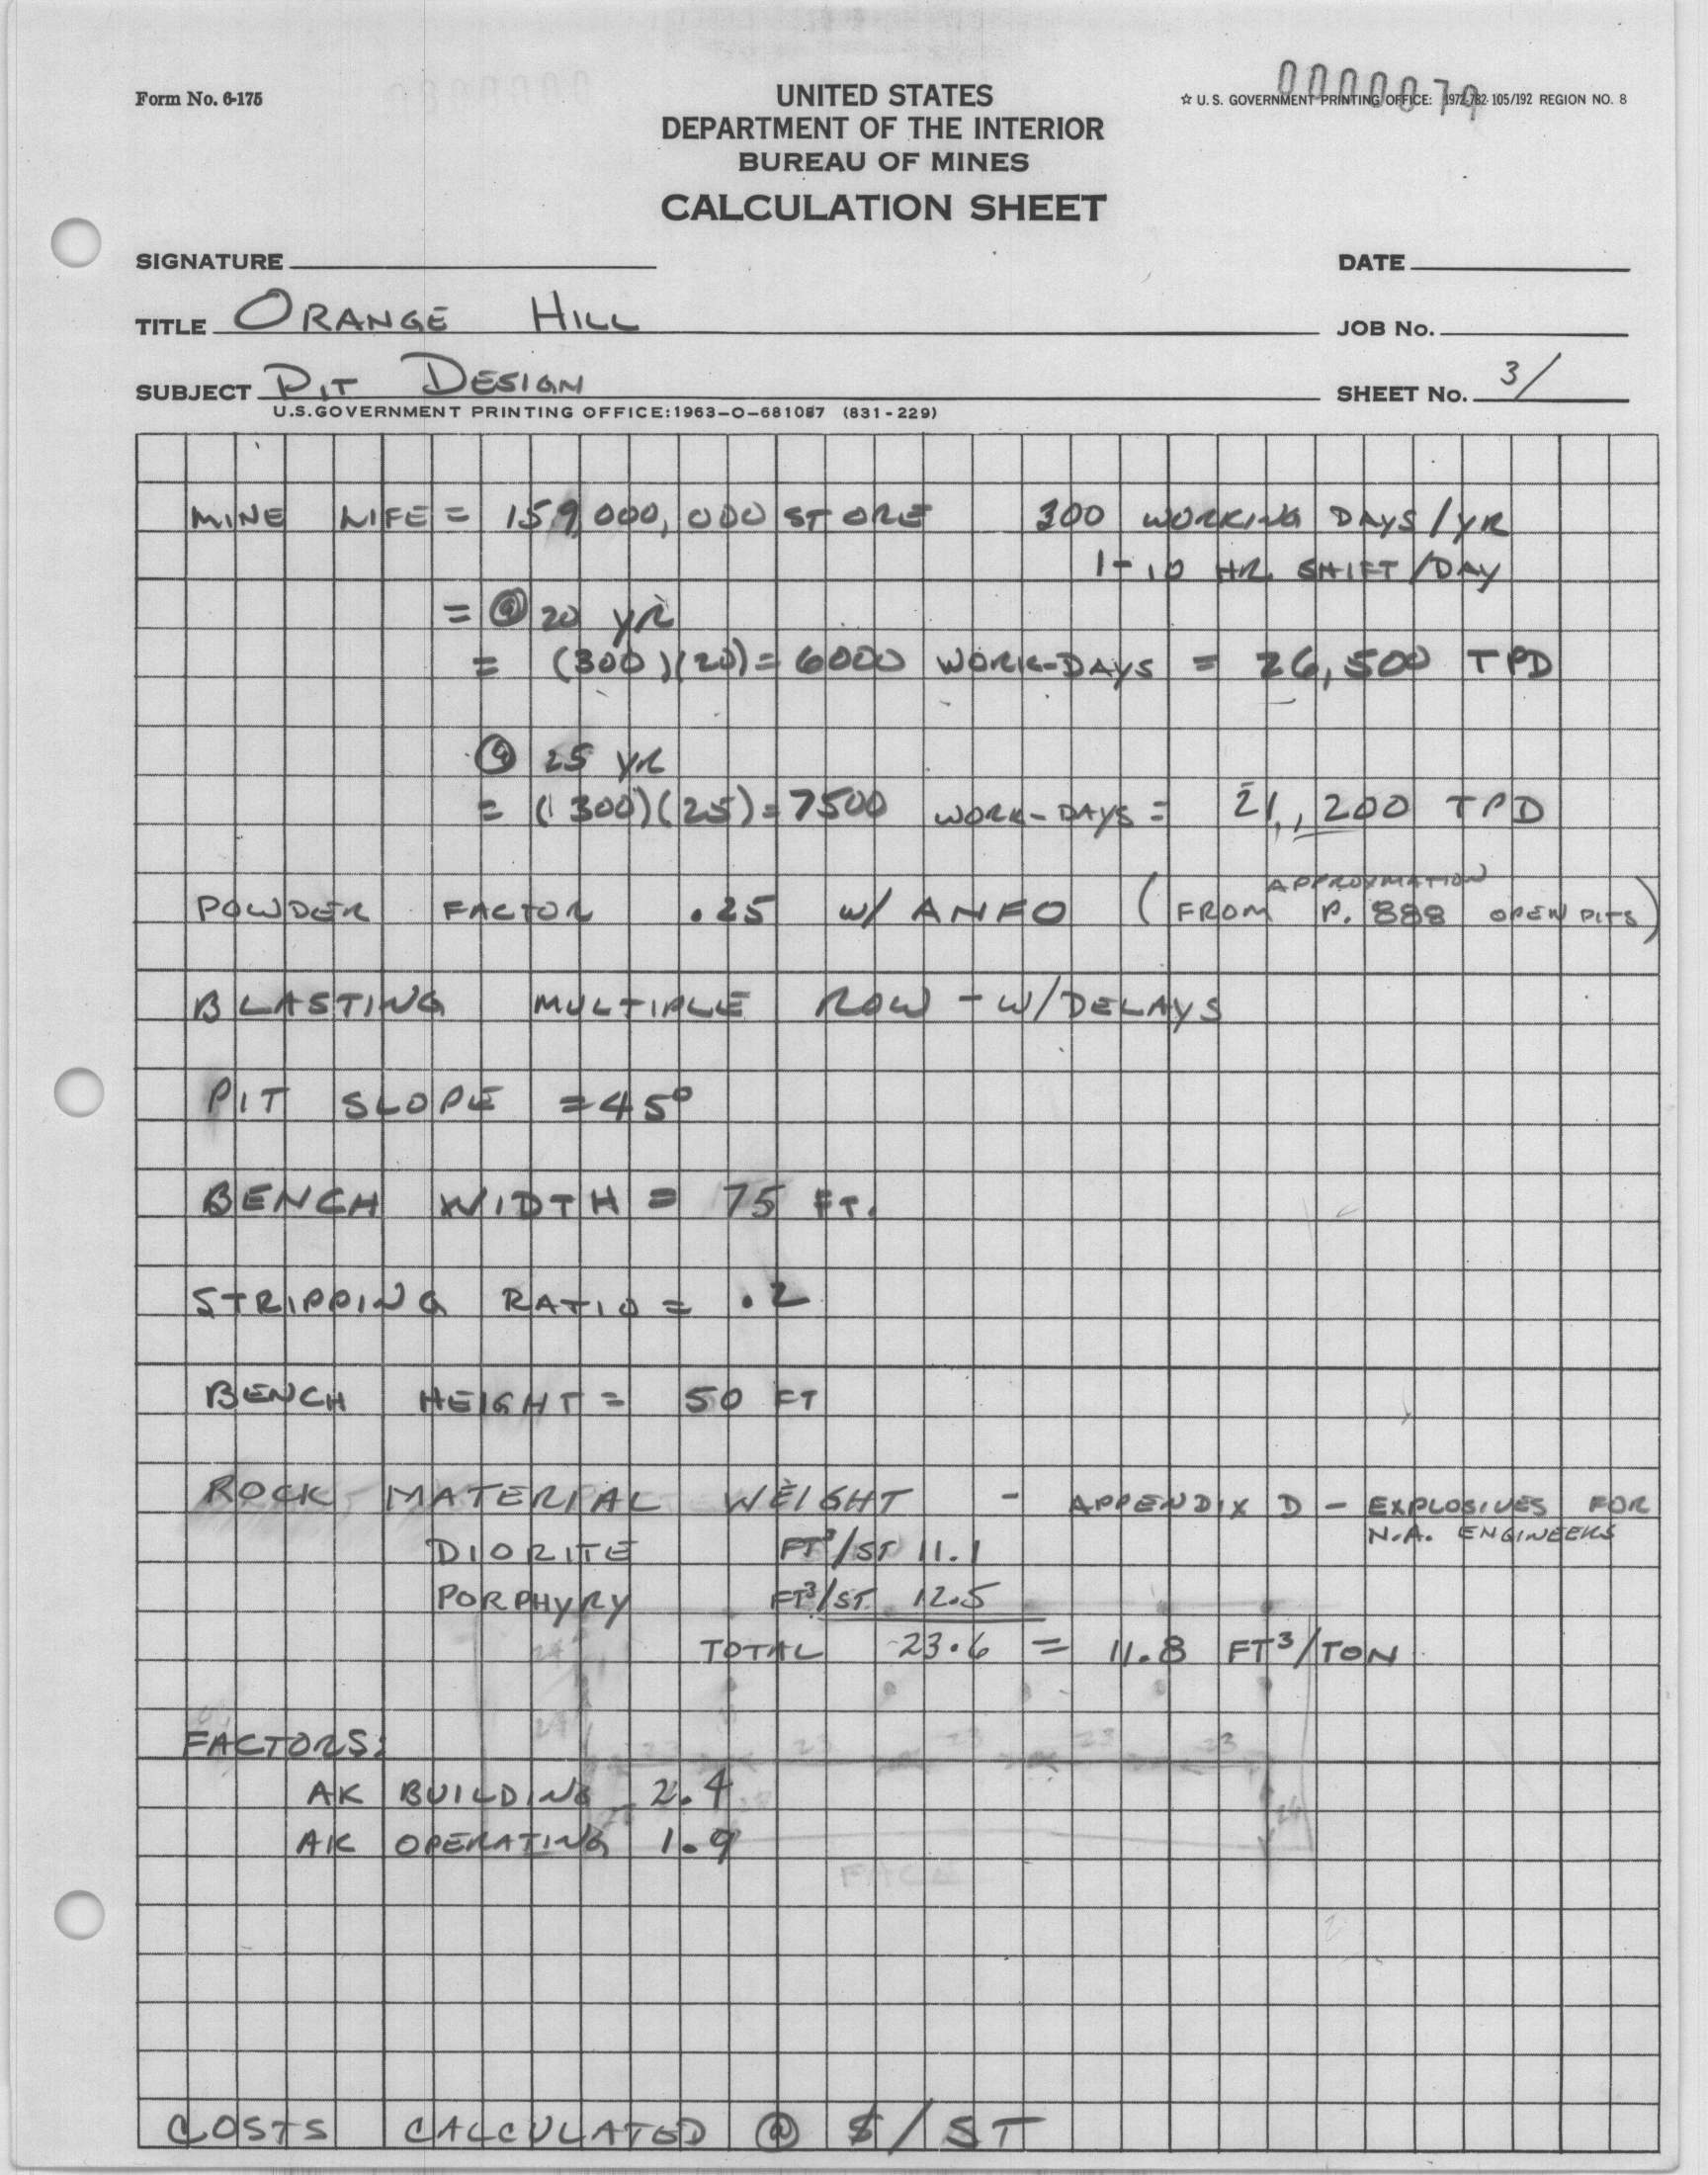 0000079
Form No. 6-175
UNITED STATES
DEPARTMENT OF THE INTERIOR
BUREAU OF MINES
CALCULATION SHEET
☆ U. S. GOVERNMENT PRINTING OFFICE: 1972-782-105/192 REGION NO. 8
SIGNATURE
DATE
TITLE ORANGE HILL
JOB No.
SUBJECT PIT DESIGN
SHEET No. 3/
U.S.GOVERNMENT PRINTING OFFICE:1963-O-681087 (831-229)
MINE LIFE = 159,000,000 ST ORE 300 WORKING DAYS/YR
1-10 HR. SHIFT/DAY
= @ 20 YR
= (300)(20) = 6000 WORK-DAYS = 26,500 TPD
@ 25 YR
= (300)(25) = 7500 WORK-DAYS = 21,200 TPD
POWDER FACTOR .25 W/ ANFO (FROM APPROXMATION P. 888 OPEN PITS)
BLASTING MULTIPLE ROW - W/DELAYS
PIT SLOPE = 45°
BENCH WIDTH = 75 FT.
STRIPPING RATIO = .2
BENCH HEIGHT = 50 FT
ROCK MATERIAL WEIGHT - APPENDIX D - EXPLOSIVES FOR
N.A. ENGINEERS
DIORITE FT³/ST 11.1
PORPHYRY FT³/ST. 12.5
TOTAL 23.6 = 11.8 FT³/TON
FACTORS:
AK BUILDING 2.4
AK OPERATING 1.9
COSTS CALCULATED @ $/ST